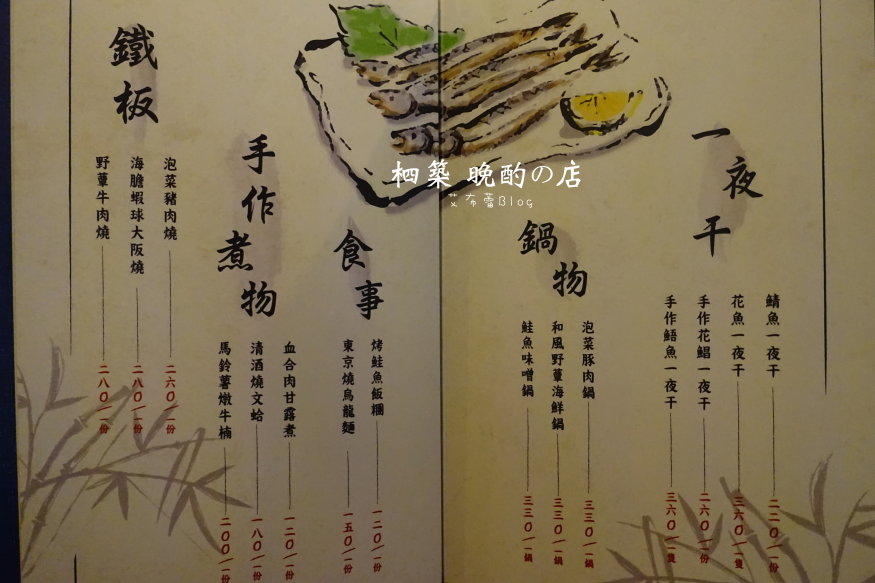 柶築 晚酌の店
艾布蕾Blog
一夜干
鯖魚一夜干 二二〇/一份
花魚一夜干 三六〇/一隻
手作花鯧一夜干 二六〇/一份
手作鯃魚一夜干 三六〇/一隻
鍋物
泡菜豚肉鍋 三三〇/一鍋
和風野蕈海鮮鍋 三三〇/一鍋
鮭魚味噌鍋 三三〇/一鍋
食事
烤鮭魚飯糰 一二〇/一份
東京燒烏龍麵 一五〇/一份
手作煮物
血合肉甘露煮 一二〇/一份
清酒燒文蛤 一八〇/一份
馬鈴薯燉牛楠 二〇〇/一份
鐵板
泡菜豬肉燒 二六〇/一份
海膽蝦球大阪燒 二八〇/一份
野蕈牛肉燒 二八〇/一份